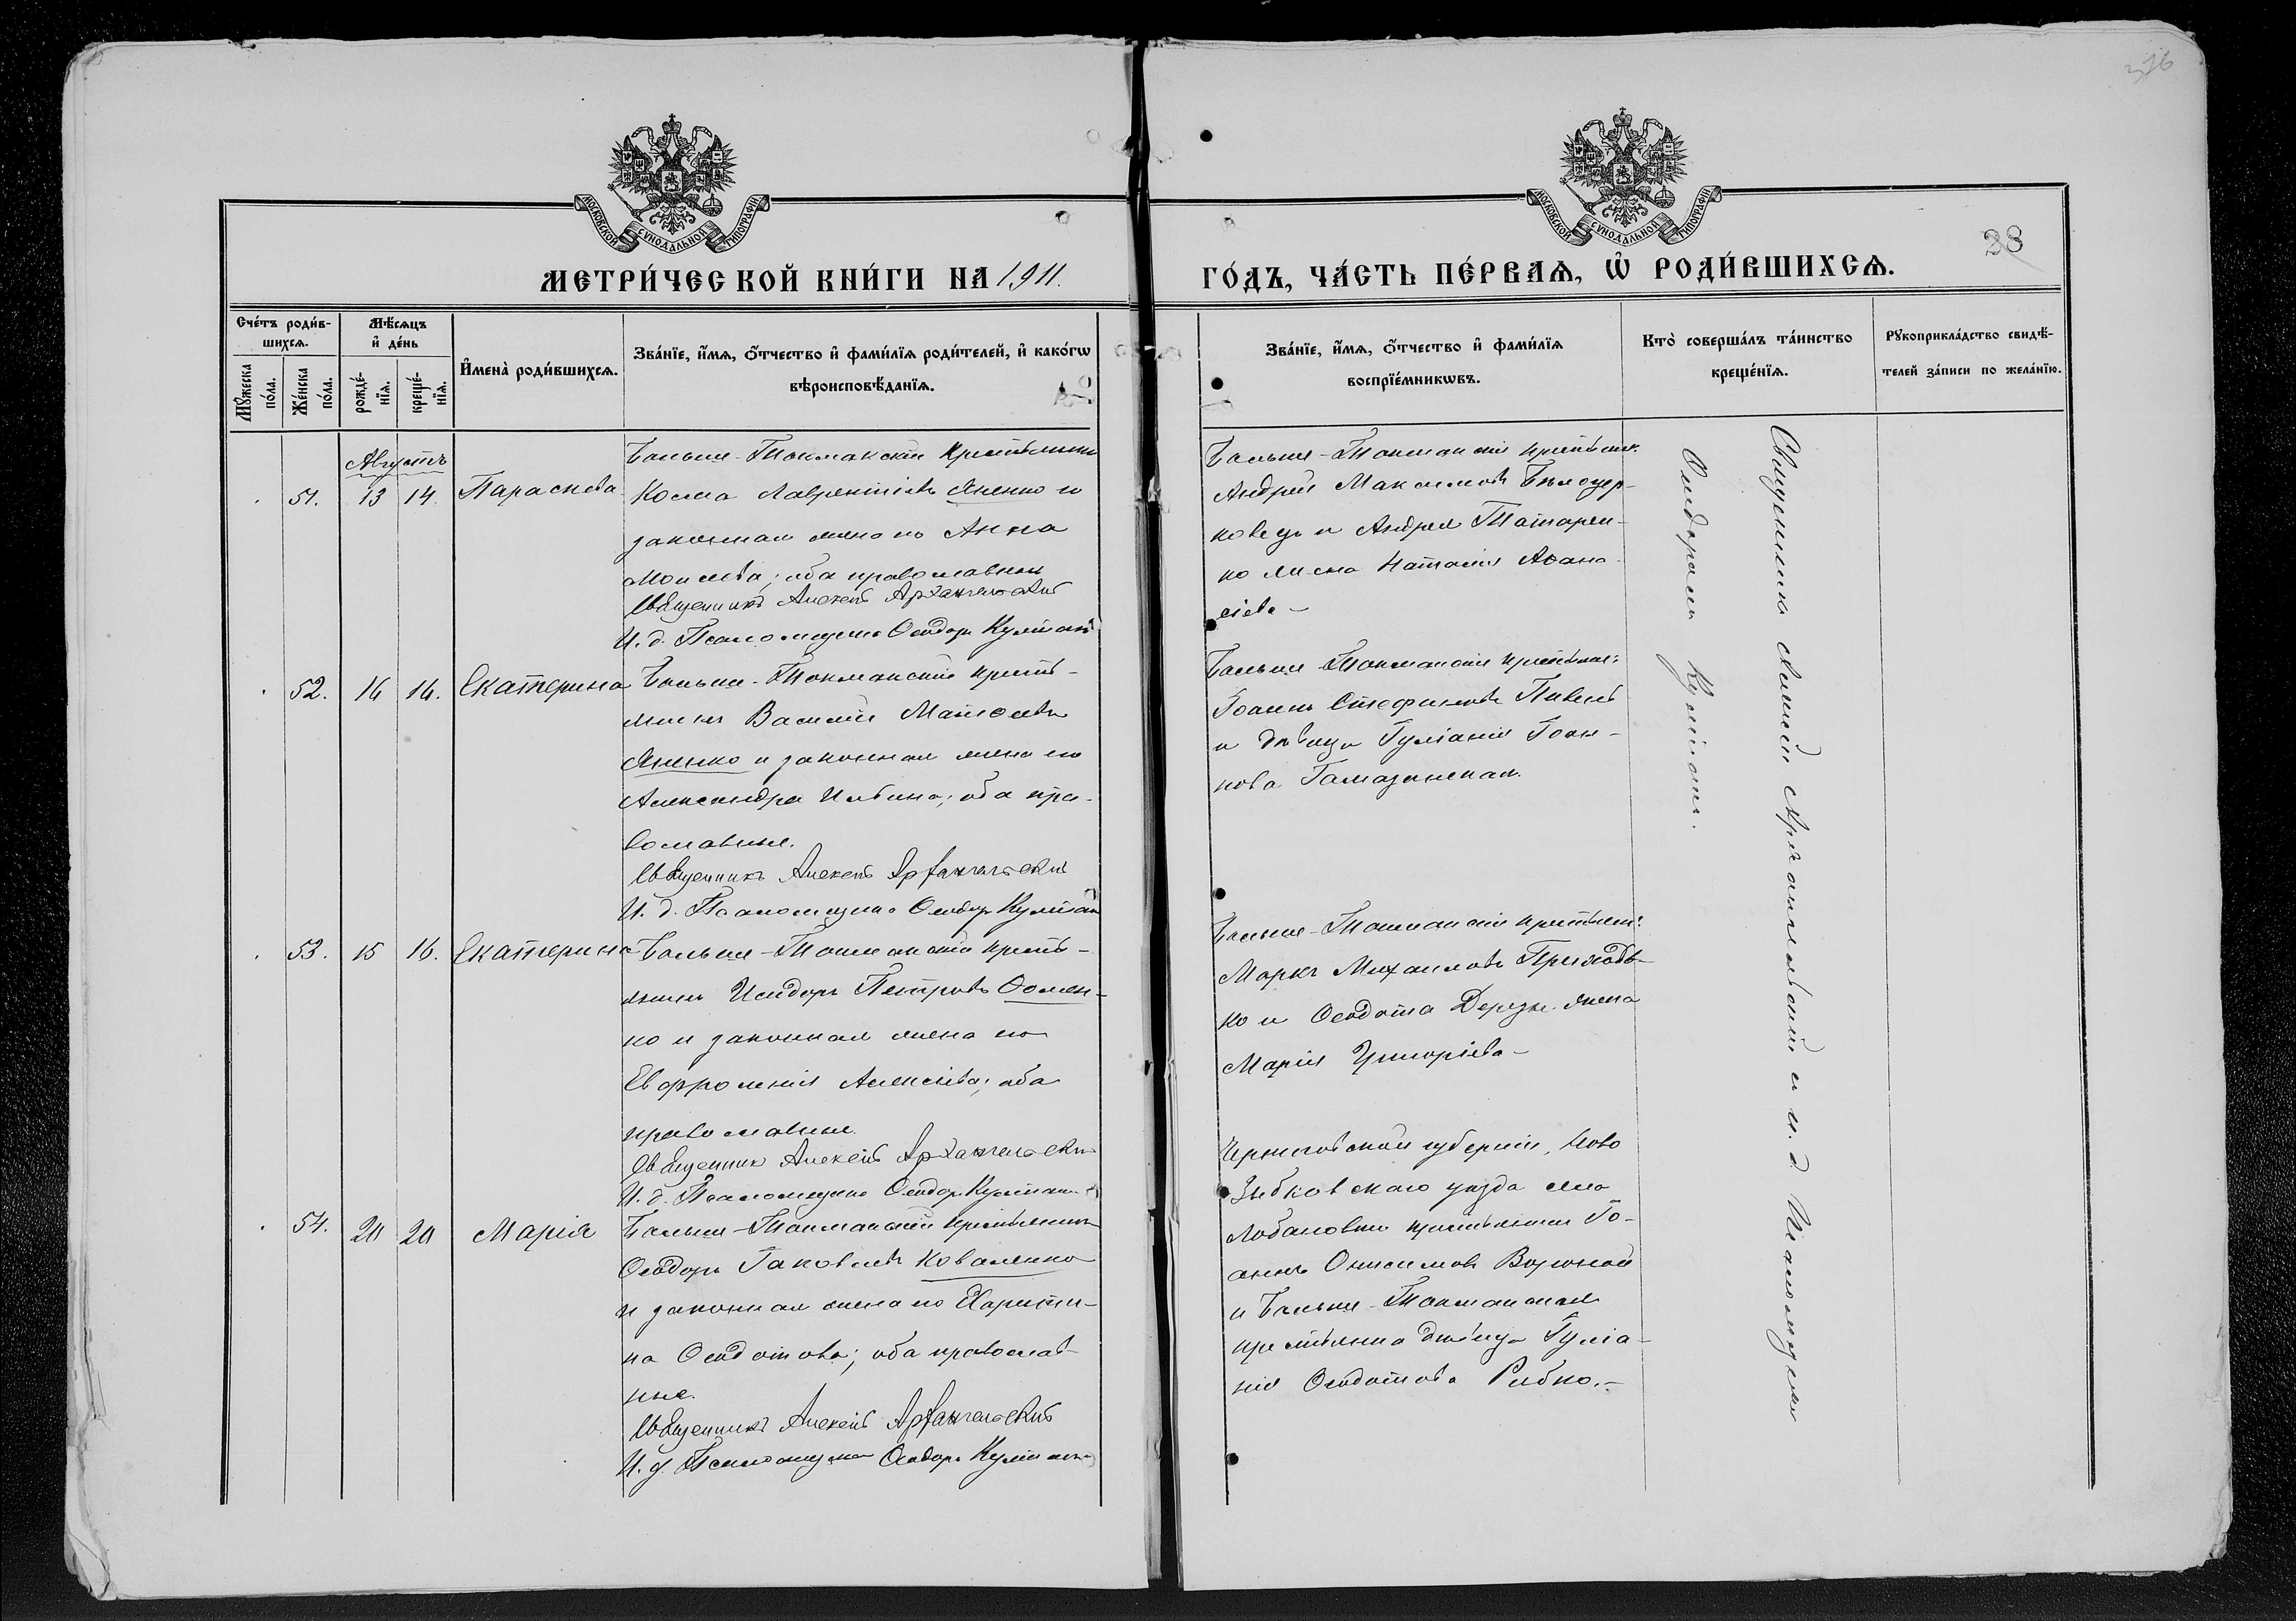 376
МОСКОВСКОЙ СѴНОДАЛЬНОЙ ТИПОГРАФІИ
МОСКОВСКОЙ СѴНОДАЛЬНОЙ ТИПОГРАФІИ
28
МЕТРИ́ЧЕСКОЙ КНИ́ГИ НА 1911.
ГО́ДЪ, ЧА́СТЬ ПЕ́РВАѦ, Ѡ҆ РОДИ́ВШИХСѦ.
Сче́тъ роди́в-
шихсѧ.
Мꙋ́жеска по́ла.
Же́нска по́ла.
Мѣ́сѧцъ
и҆ де́нь
рожде́-
нїѧ.
креще́-
нїѧ.
И҆мена̀ роди́вшихсѧ.
Зва́нїе, и҆́мѧ, ѻ҆́тчество и҆ фами́лїѧ роди́телей, и҆ како́гѡ
вѣроисповѣ́данїѧ.
Зва́нїе, и҆́мѧ, ѻ҆́тчество и҆ фами́лїѧ
воспрїе́мникѡвъ.
Кто̀ соверша́лъ та́инство
креще́нїѧ.
Рꙋкоприкла́дство свидѣ́-
телей за́писи по жела́нїю.
Августъ
51. 13 14. Параскева
Больше-Токмакскій крестьянинъ
Косма Лаврентіевъ Яненко и
законная жена его Анна
Моисеева; оба православные
Священникъ Алексѣй Архангельскій
И. д. Псаломщика Ѳеодоръ
Больше-Токмакскіе крестьян.
Андрей Максимовъ Бѣлоцер-
ковецъ и Андрея Татарен-
ко жена Наталія Аѳана-
сіева –
52. 16 16. Екатерина
Больше-Токмакскій кресть-
янинъ Василій Матѳеевъ
Яненко и законная жена его
Александра Ильина; оба пра-
вославные.
Священникъ Алексѣй Архангельскій
И. д. Псаломщика Ѳеодоръ
Больше-Токмакскіе крестьян:
Іоаннъ Стефановъ Пивень
и дѣвица Іуліанія Іоан-
нова
53. 15 16. Екатерина
Больше-Токмакскій кресть-
янинъ Исидоръ Петровъ Ѳомен-
ко и законная жена его
Евфросинія Алексіева; оба
православные.
Священникъ Алексѣй Архангельскій
И. д. Псаломщика Ѳеодоръ
Больше-Токмакскіе крестьян:
Маркъ Михаиловъ Приходь-
ко и Ѳеодота жена
Марія Григоріева –
54. 20 20 Марія
Больше-Токмакскій крестьянинъ
Ѳеодоръ Іаковлевъ Коваленко
и законная жена его Харити-
на Ѳеодотова; оба православ-
ные.
Священникъ Алексѣй Архангельскій
И. д. Псаломщика Ѳеодоръ
Черниговской губерніи, Ново
Зыбковскаго уѣзда села
Лобановки крестьянинъ Іо-
аннъ Онисимовъ
и Больше-Токмакская
крестьянка дѣвица Іуліа-
нія Ѳеодотова Рибко.–
Священникъ Алексій Архангельскій и и. д. Псаломщика
Ѳеодоръ